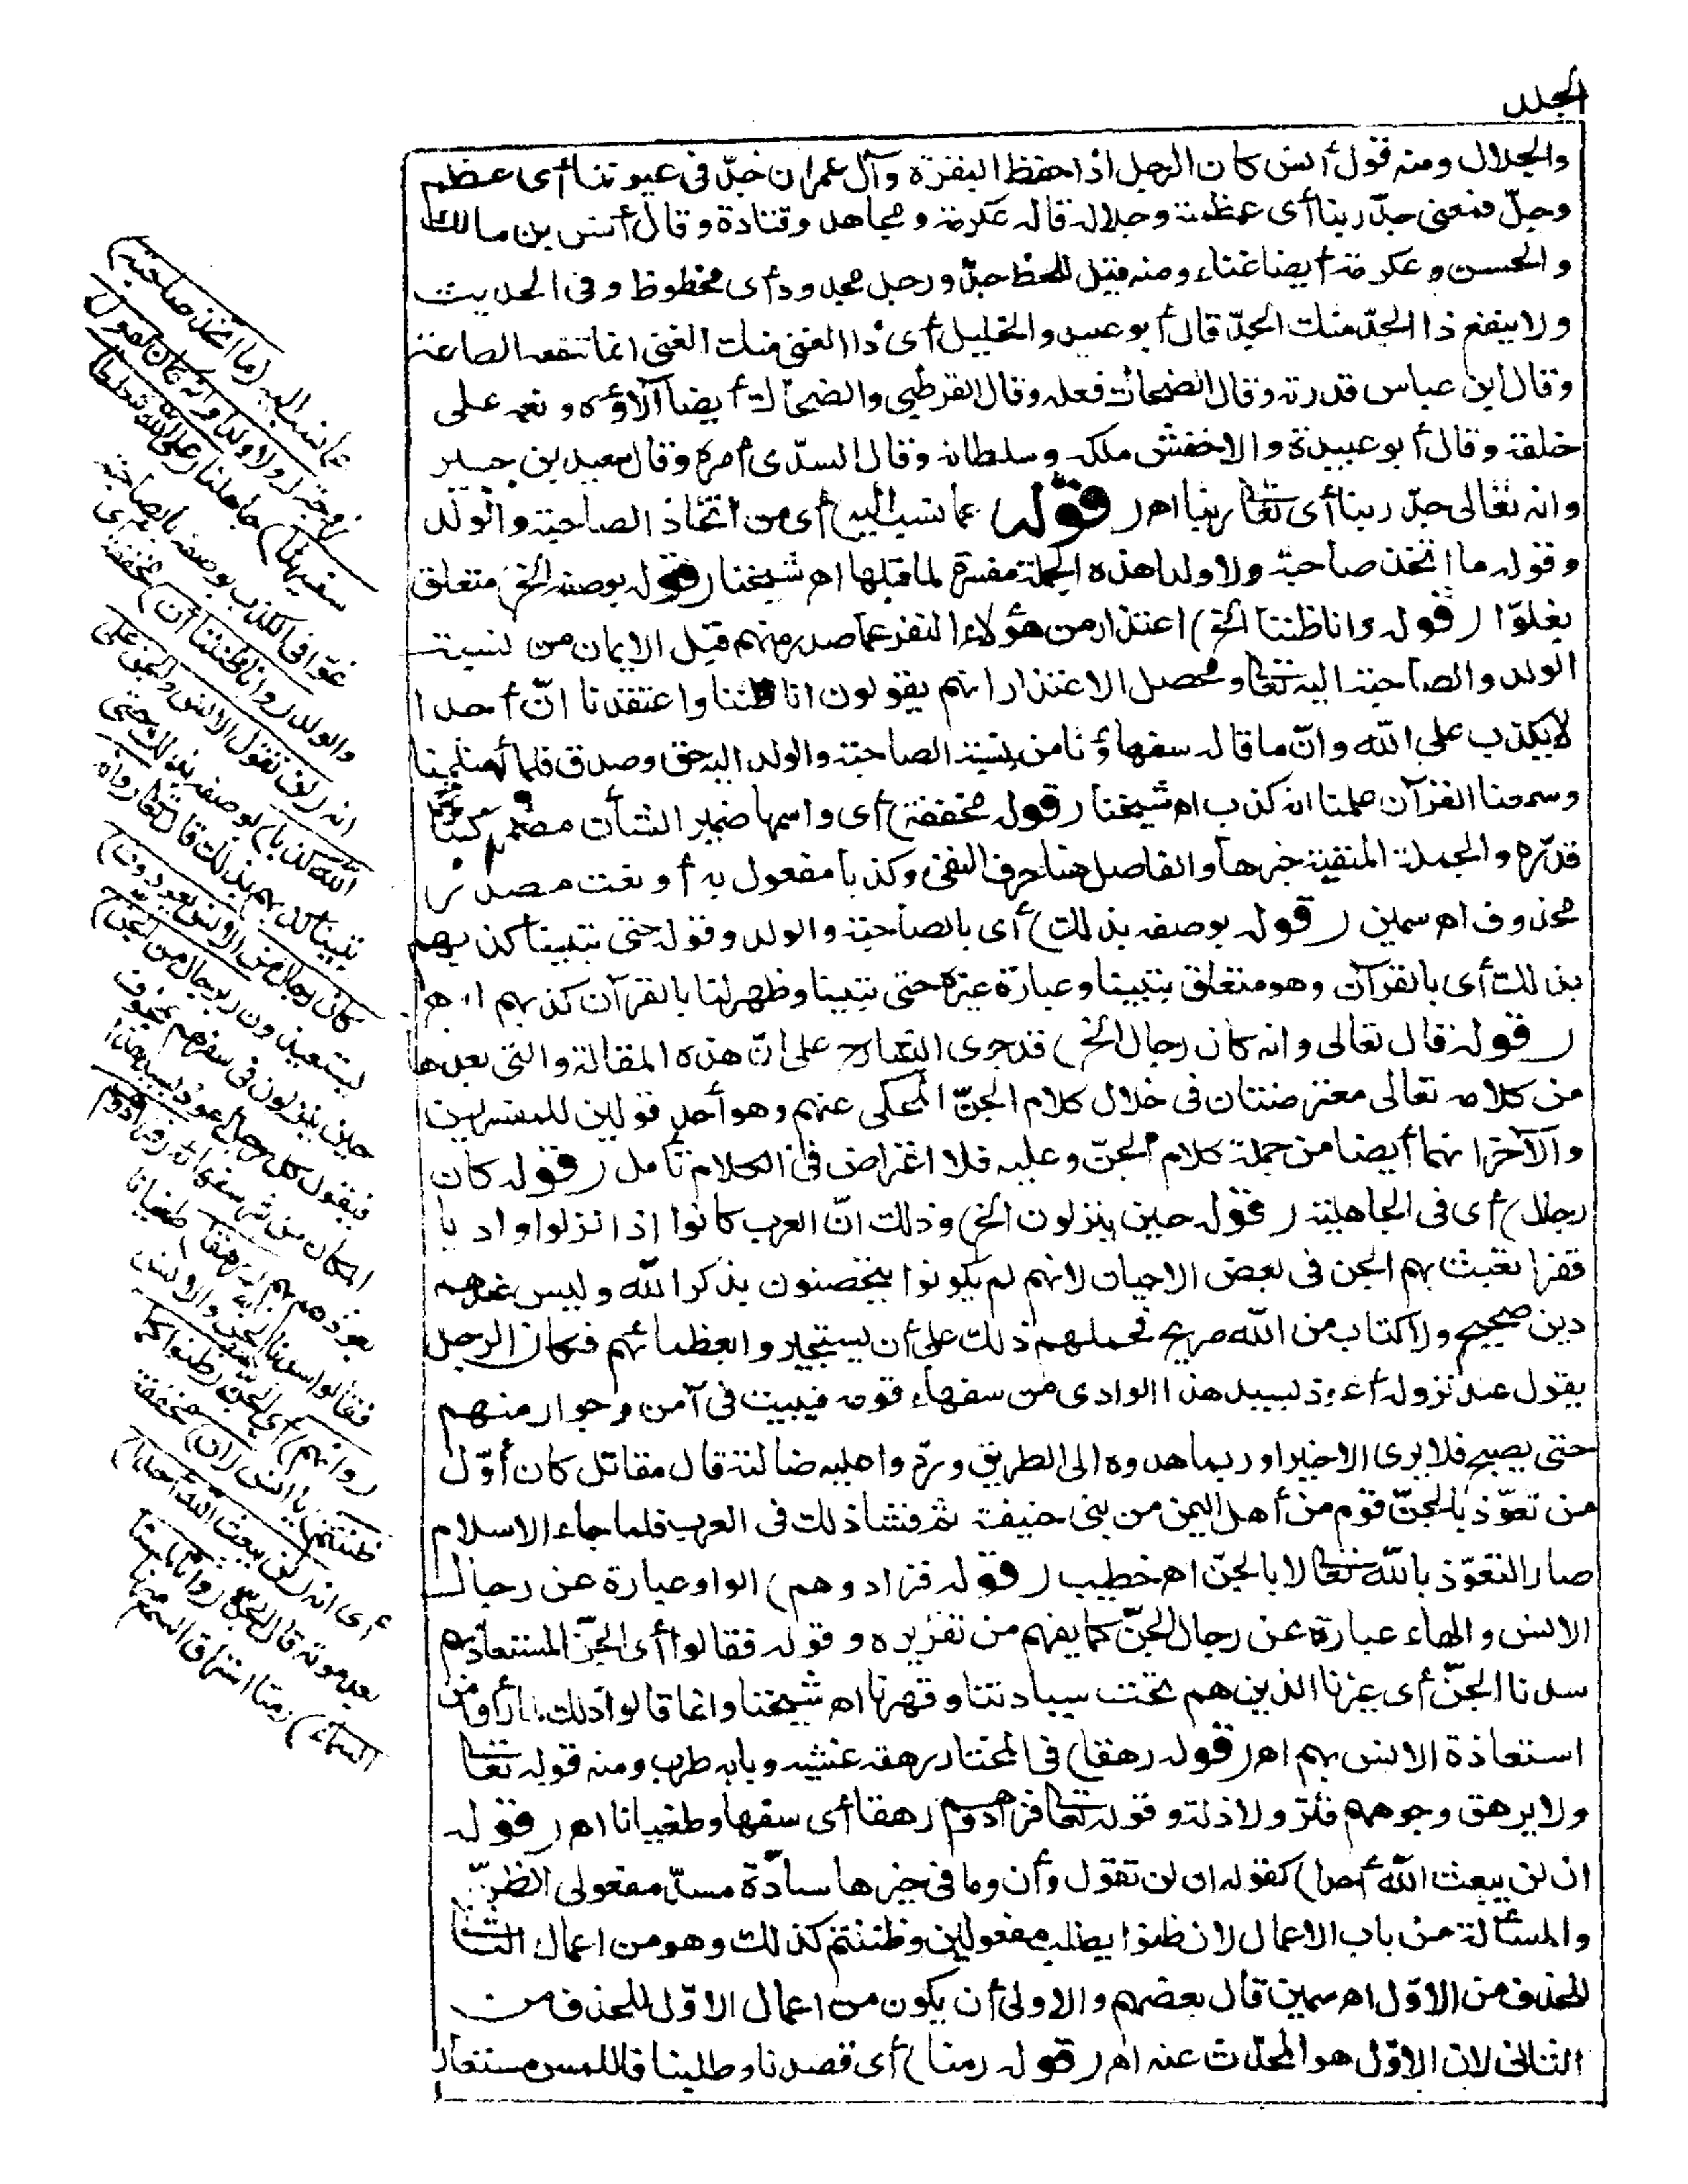 الجلال
والجلال ومنه قول أنس كان الرجل اذا حفظ البقرة وآل عمران جدّ فى عيوننا أى عظم
وجلّ فمعنى جدّ ربنا أى عظمته وجلاله قاله عكرمة ومجاهد وقتادة وقال أنس بن مالك
والحسن وعكرمة أيضا غناه ومنه قيل للحظ جدّ ورجل مجدود أى محظوظ وفى الحديث
ولا ينفع ذا الجدّ منك الجدّ قال أبو عبيد والخليل أى ذا الغنى منك الغنى انما تنفعه الطاعة
وقال ابن عباس قدرته وقال الضحاك فعله وقال القرطبى والضحاك أيضا آلاؤه ونعمه على
خلقه وقال أبو عبيدة والاخفش ملكه وسلطانه وقال السدّى أمره وقال سعيد بن جبير
وانه تعالى جدّ ربنا أى تعالى ربنا اهـ (قوله عما نسب اليه) أى من اتخاذ الصاحبة والولد
وقوله ما اتخذ صاحبة ولا ولدا هذه الجملة مفسرة لما قبلها اهـ شيخنا (قوله بوصفه الخ) متعلق
بغلوّا (قوله وانا ظننا الخ) اعتذار من هؤلاء النفر عما صدر منهم قبل الايمان من نسبة
الولد والصاحبة اليه تعالى ومحصل الاعتذار انهم يقولون انا ظننا واعتقدنا انّ أحدا
لا يكذب على الله وانّ ما قاله سفهاؤنا من نسبة الصاحبة والولد اليه حق وصدق فلما أسلمنا
وسمعنا القرآن علمنا انه كذب اهـ شيخنا (قوله مخففة) أى واسمها ضمير الشأن مضمر كما
قدّره والجملة المنفية خبرها والفاصل هنا حرف النفى وكذبا مفعول به أو نعت مصدر
محذوف اهـ سمين (قوله بوصفه بذلك) أى بالصاحبة والولد وقوله حتى تبينا كذبهم
بذلك أى بالقرآن وهو متعلق بتبينا وعبارة غيره حتى تبينا وظهر لنا بالقرآن كذبهم اهـ
(قوله قال تعالى وانه كان رجال الخ) قد جرى الشارح على انّ هذه المقالة والتى بعدها
من كلامه تعالى معترضتان فى خلال كلام الجنّ المحكى عنهم وهو أحد قولين للمفسرين
والآخر انهما أيضا من جملة كلام الجنّ وعليه فلا اعتراض فى الكلام تأمل (قوله كان
رجال) أى فى الجاهلية (قوله حين ينزلون الخ) وذلك انّ العرب كانوا اذا نزلوا واديا
قفرا تعبث بهم الجن فى بعض الاحيان لانهم لم يكونوا يتحصنون بذكر الله وليس عندهم
دين صحيح ولا كتاب من الله صريح فحملهم ذلك على أن يستجيروا بعظمائهم فكان الرجل
يقول عند نزوله أعوذ بسيد هذا الوادى من سفهاء قومه فيبيت فى أمن وجوار منهم
حتى يصبح فلا يرى الا خيرا وربما هدوه الى الطريق وردّوا عليه ضالته قال مقاتل كان أوّل
من تعوّذ بالجنّ قوم من أهل اليمن من بنى حنيفة ثم فشا ذلك فى العرب فلما جاء الاسلام
صار التعوّذ بالله تعالى لا بالجنّ اهـ خطيب (قوله فزادوهم) الواو عبارة عن رجال
الانس والهاء عبارة عن رجال الجنّ كما يفهم من تقريره وقوله فقالوا أى الجنّ المستعاذ بهم
سدنا الجنّ أى غيرنا الذين هم تحت سيادتنا وقهرنا اهـ شيخنا وانما قالوا ذلك لما رأوا من
استعاذة الانس بهم اهـ (قوله رهقا) فى المختار رهقه غشيه وبابه طرب ومنه قوله تعالى
ولا يرهق وجوههم قتر ولا ذلة وقوله تعالى فزادوهم رهقا أى سفها وطغيانا اهـ (قوله
ان لن يبعث الله أحدا) كقوله ان لن تقول وأن وما فى حيزها سادّة مسدّ مفعولى الظنّ
والمسألة من باب الاعمال لان ظنوا يطلب مفعولين وظننتم كذلك وهو من اعمال الثانى
للحذف من الاوّل اهـ سمين قال بعضهم والاولى أن يكون من اعمال الاوّل للحذف من
الثانى لان الاوّل هو المحدّث عنه اهـ (قوله رمنا) أى قصدنا وطلبنا فاللمس مستعار
عما نسب اليه (ما اتخذ صاحبة)
زوجة (ولا ولدا وانه كان يقول
سفيهنا) جاهلنا (على الله شططا)
غلوّا فى الكذب بوصفه بالصاحبة
والولد (وانا ظننا أن) مخففة أى
انه (لن تقول الانس والجن على
الله كذبا) بوصفه بذلك حتى
تبينا كذبهم بذلك قال تعالى (وانه
كان رجال من الانس يعوذون)
يستعيذون (برجال من الجن)
حين ينزلون فى سفرهم بمخوف
فيقول كل رجل أعوذ بسيد هذا
المكان من شر سفهائه (فزادوهم)
بعوذهم بهم (رهقا) طغيانا
فقالوا سدنا الجن والانس
(وانهم) أى الجن (ظنوا كما
ظننتم) يا انس (أن) مخففة
أى انه (لن يبعث الله أحدا)
بعد موته قال الجن (وانا لمسنا
السماء) رمنا استراق السمع منها